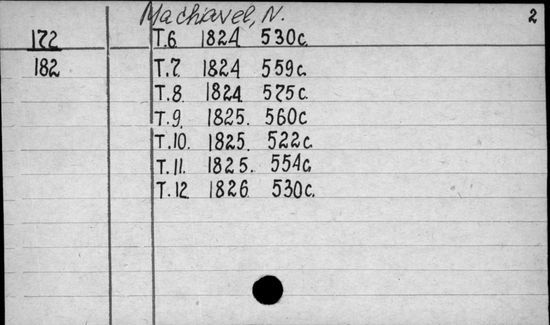 Machiavel, N. 2
172 T.6 1824 530с.
182 T.7 1824 559с.
T.8. 1824 575с.
T.9. 1825. 560с
T.10. 1825. 522с.
T.11. 1825. 554с.
T.12 1826. 530с.